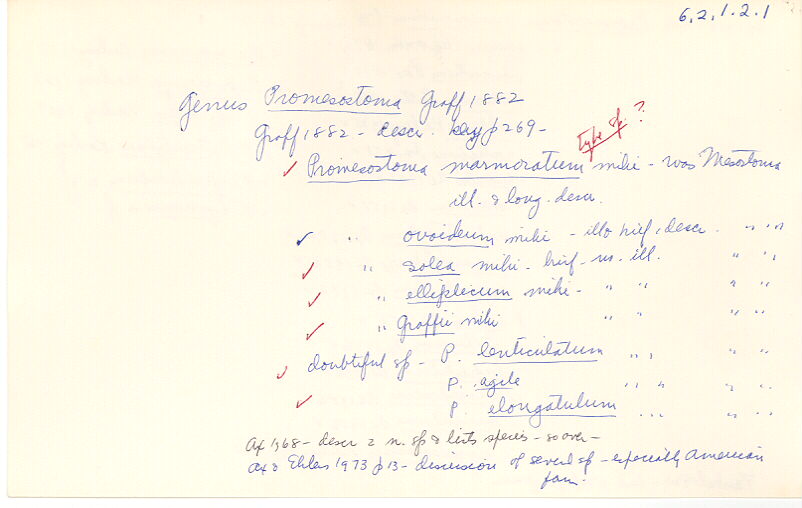 6.2.1.2.1
Genus Promesostoma Graff 1882
Graff 1882 - descr. key p 269 -
Type sp. ?
Promesostoma marmoratum mihi - was Mesostoma
ill. & long. descr.
" ovoideum mihi - illo brief, descr. " "
" solea mihi - brief - no ill. " "
" ellipticum mihi - " " " "
" Graffii mihi " " " "
doubtful sp - P. lenticulatum " " " "
P. agile " " " "
P. elongatulum " " "
Ax 1968 - descr 2 n. sp & lists species - so over -
Ax & Ehlers 1973 p 13 - discussion of several sp - especially American
fam.